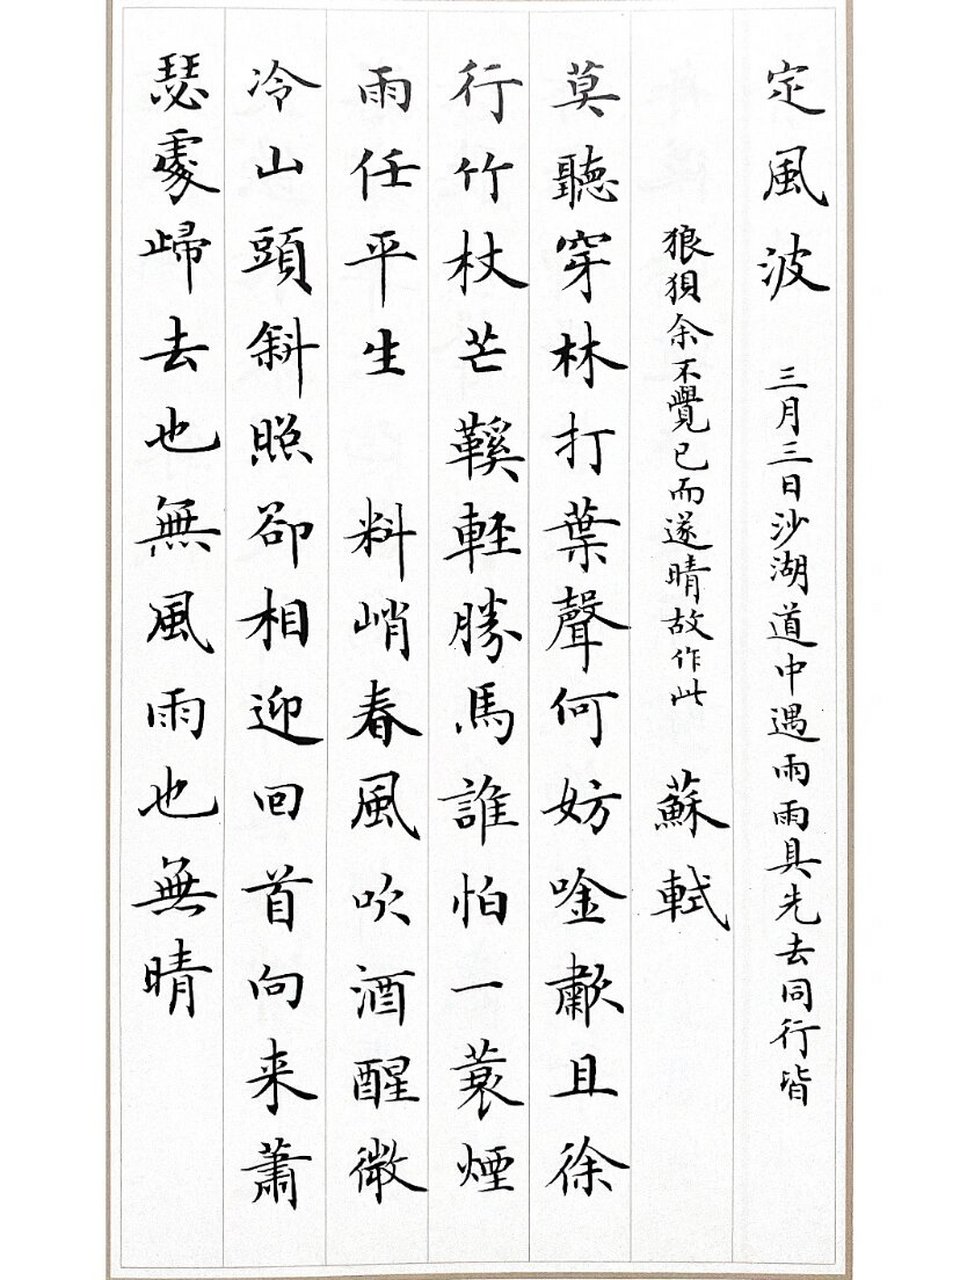 定風波 三月三日沙湖道中遇雨雨具先去同行皆
狼狽余不覺已而遂晴故作此 蘇軾
莫聽穿林打葉聲何妨唫歗且徐
行竹杖芒鞵輕勝馬誰怕一蓑煙
雨任平生 料峭春風吹酒醒微
冷山頭斜照卻相迎回首向来蕭
瑟處歸去也無風雨也無晴